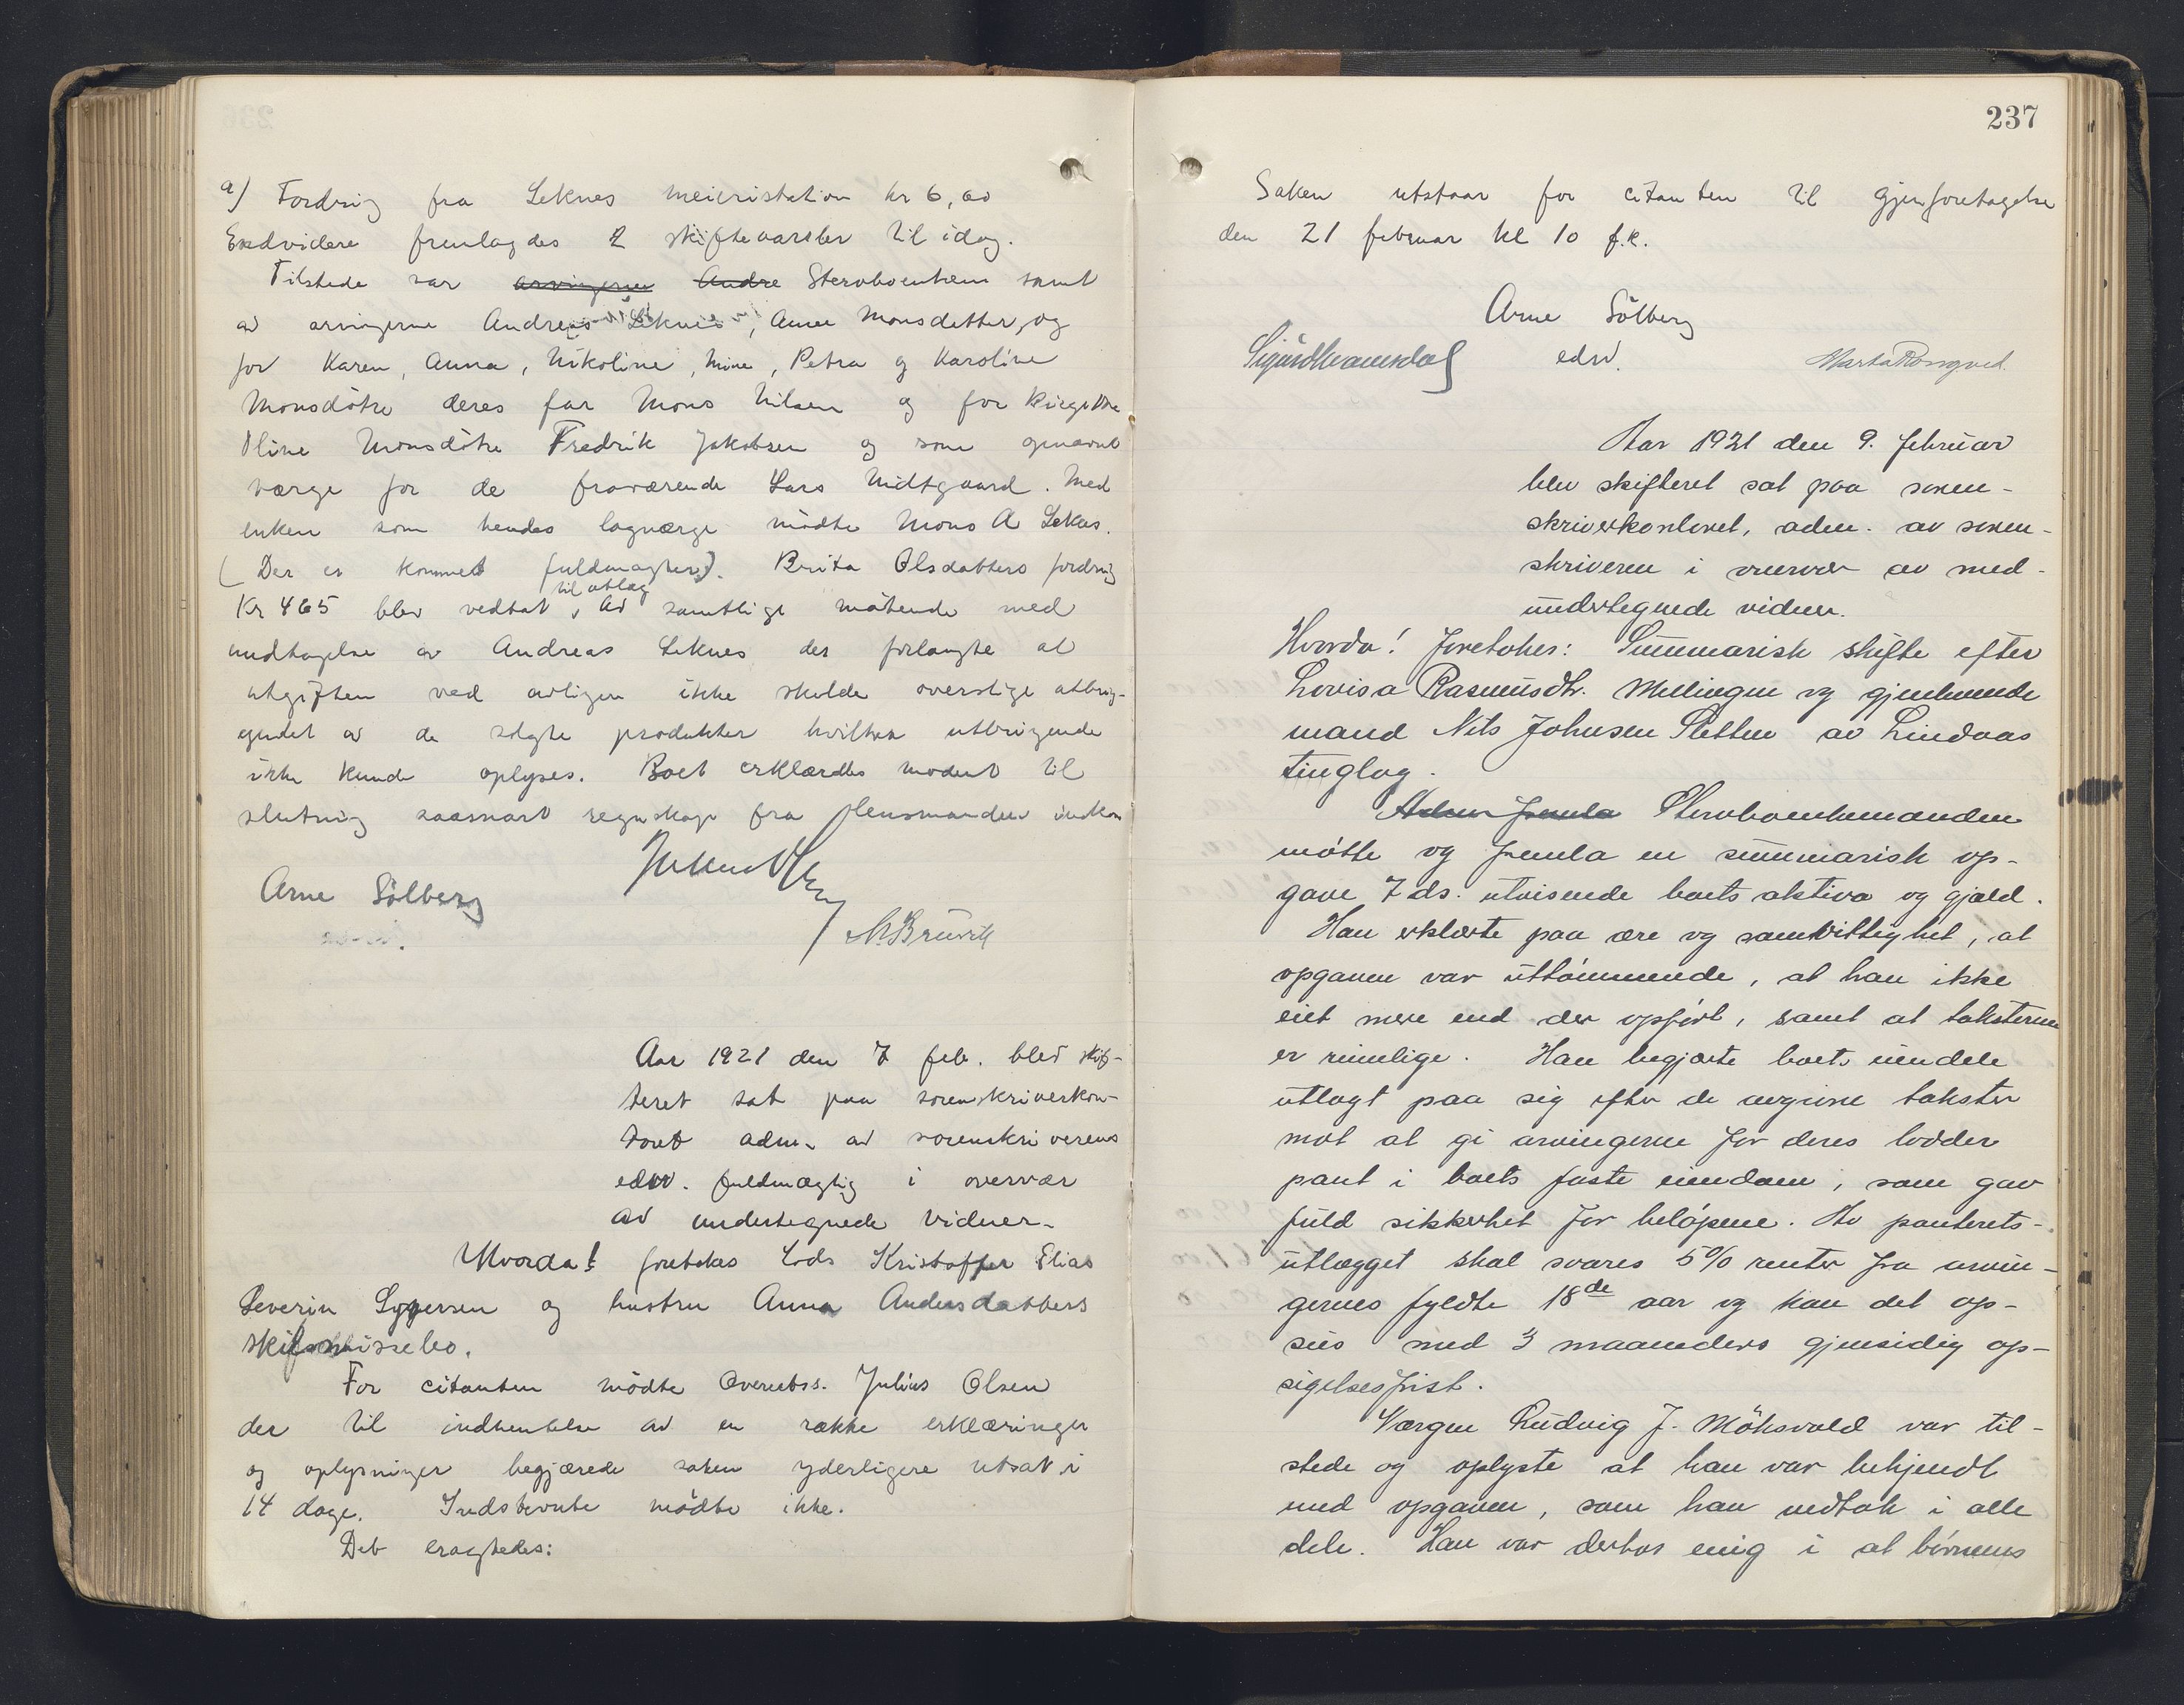 a) Fordring fra Leknes meieristation kr 6,00
Endvidere fremlagdes 2 skiftevarsler til idag.
Tilstede var arvingerne Andre Stervboenken samt
av arvingerne Andreas Leknes, Anne Monsdatter, og
for Karen, Anna, Nikoline, Mine, Petra og Karoline
Monsdøtre deres far Mons Nilsen og for Birgitte
Oline Monsdøtre Fredrik Jakobsen og som opnævnt
værge for de fraværende Lars Midtgaard. Med
enken som hendes lagværge mødte Mons A Leknes.
(Der er kommet fuldmagter). Brita Olsdatters fordring
til utlæg
Kr 465 blev vedtat, av samtlige møtende med
undtagelse av Andreas Leknes der forlangte at
utgiften ved avlingen ikke skulde overstige utbrin-
gendet av de solgte produkter hvilket utbringende
ikke kunde oplyses. Boet erklærtes modent til
slutning saasnart regnskap fra lensmanden indkom
Arne Sölberg
M. Bruvik
Aar 1921 den 7 feb. blev skif-
teret sat paa sorenskriverkon-
toret adm. av sorenskriverens
edsv. fuldmægtig i overvær
av undertegnede vidner.
Hvorda! foretokes Lods Kristoffer Elias
Severin Syversen og hustru Anna Andersdatters
skilsmissebo.
For citanten mödte Overretss. Julius Olsen
der til indhentelse av en række erklæringer
og oplysninger begjærede saken yderligere utsat i
14 dage. Indstevnte mödte ikke.
Det eragtedes:
237
Saken utstaar for citanten til gjenforetagelse
den 21 februar kl 10 f.k.
Arne Sölberg
edsv.
Aar 1921 den 9. februar
blev skifteret sat paa soren-
skriverkontoret, adm. av soren-
skriveren i overvær av med-
undertegnede vidner.
Hvorda! Foretokes: Summarisk skifte efter
Lovisa Rasmusdtr. Mellingen og gjenlevende
mand Nils Johnsen Sletten av Lindaas
tinglag.
Adm. fremla Stervboenkemanden
møtte og fremla en summarisk op-
gave 7 ds. utvisende boets aktiva og gjæld.
Han erklærte paa ære og samvittighet, at
opgaven var uttømmende, at han ikke
eiet mere end der opført, samt at taksterne
er rimelige. Han begjærte boets eiendele
utlagt paa sig efter de avgivne takster
mot at gi arvingerne for deres lodder
pant i boets faste eiendom, som gav
fuld sikkerhet for beløpene. Av panterets-
utlægget skal svares 5% renter fra arvin-
gernes fyldte 18de aar og kan det op-
sies med 3 maaneders gjensidig op-
sigelsesfrist.
Værgen Ludvig J. Möksvold var til-
stede og oplyste at han var bekjendt
med opgaven, som han vedtok i alle
dele. Han var derhos enig i at børnenes